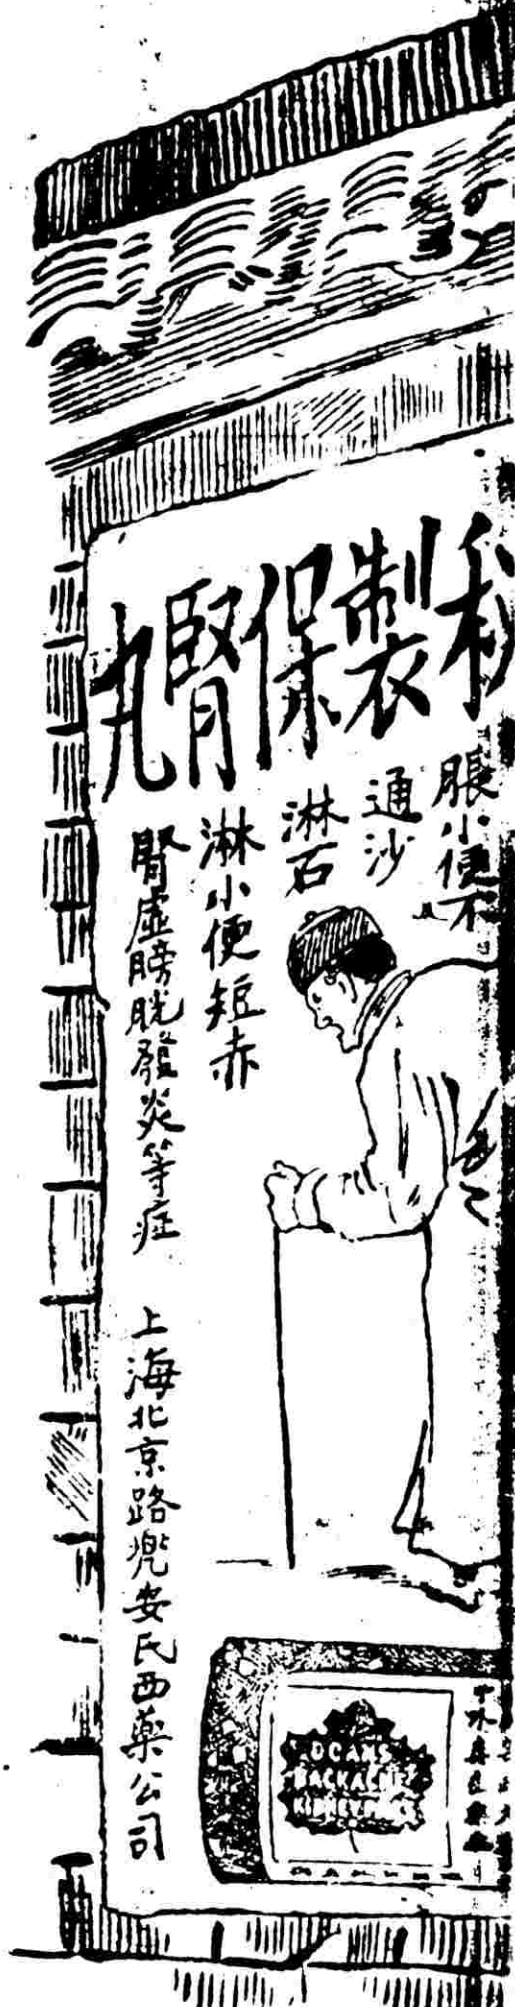 秘製保腎丸
脹小便不
通沙
淋石
淋小便短赤
腎虛膀胱發炎等症
上海北京路兜安氏西藥公司
BACKACHE
KIDNEY